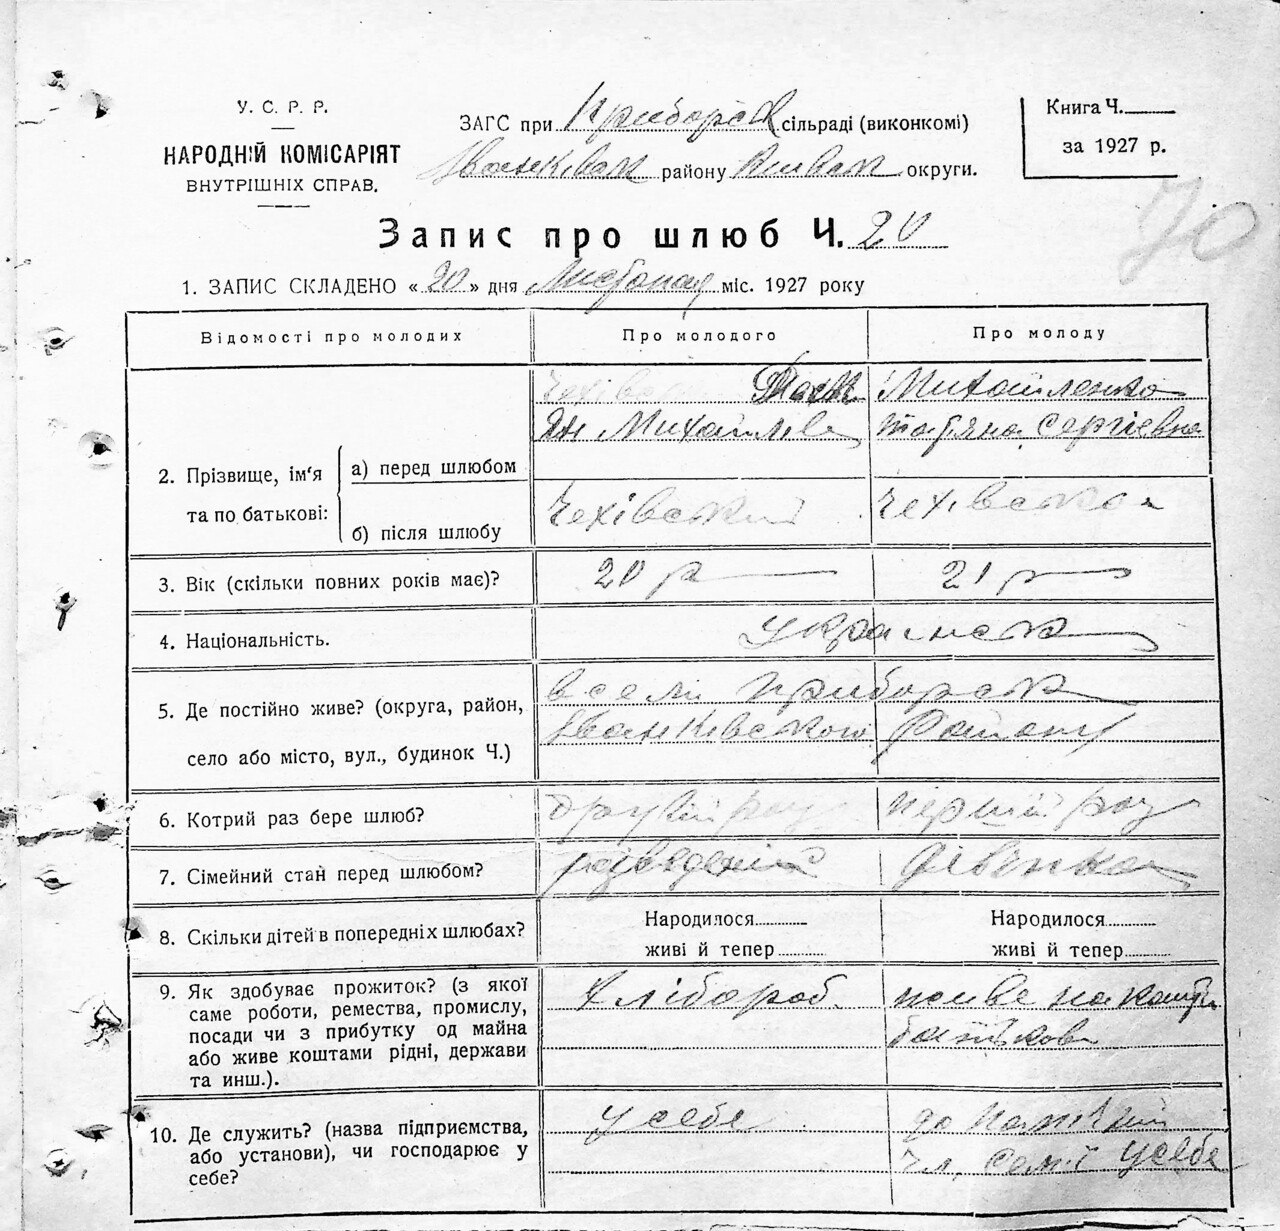 У. С. Р. Р.
НАРОДНІЙ КОМІСАРІЯТ
ВНУТРІШНІХ СПРАВ.
ЗАГС при Приборск сільраді (виконкомі)
Іванківськ району Київськ округи.
Книга Ч.
за 1927 р.
70
Запис про шлюб Ч. 20
1. ЗАПИС СКЛАДЕНО « 20 » дня Листопад міс. 1927 року
Відомості про молодих
Про молодого
Про молоду
2. Прізвище, ім'я та по батькові:
а) перед шлюбом
Михайленко
Михайлов
Татьяна Сергієвна
б) після шлюбу
Чехівський
Чехівська
3. Вік (скільки повних років має)?
20 р
21 р
4. Національність.
Українськ
5. Де постійно живе? (округа, район,
село або місто, вул., будинок Ч.)
в селі Приборськ
Іванківського Району
6. Котрий раз бере шлюб?
другий раз
перший раз
7. Сімейний стан перед шлюбом?
розведений
дівчина
8. Скільки дітей в попередніх шлюбах?
Народилося
живі й тепер
Народилося
живі й тепер
9. Як здобуває прожиток? (з якої
саме роботи, ремества, промислу,
посади чи з прибутку од майна
або живе коштами рідні, держави
та инш.).
Хлібороб
на кошти
батькови
10. Де служить? (назва підприємства,
або установи), чи господарює у
себе?
у себе
чл. семії у себе